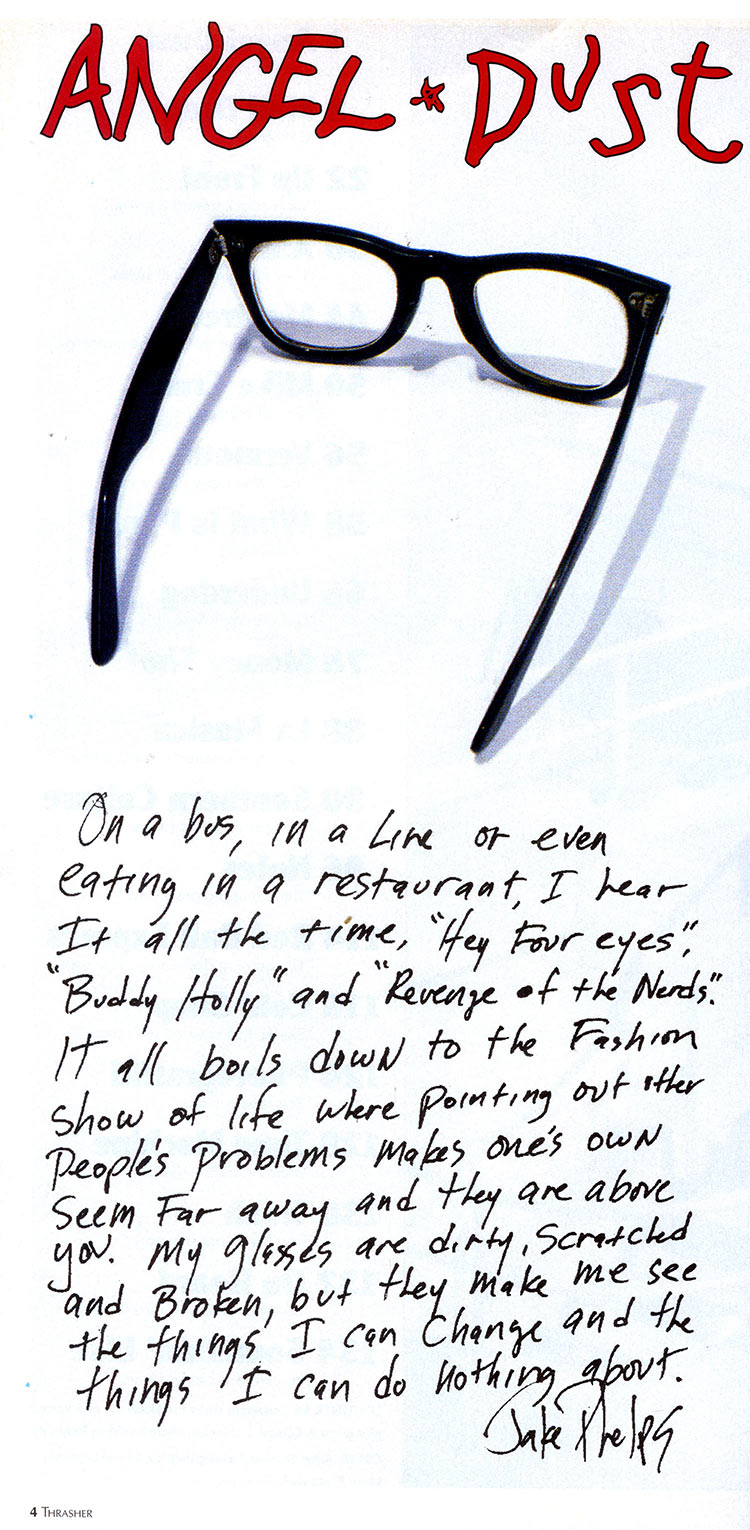 ANGEL * DUST
On a bus, in a Line or even
eating in a restaurant, I hear
It all the time, "Hey Four eyes",
"Buddy Holly" and "Revenge of the Nerds".
IT all boils down to the Fashion
show of life where pointing out other
People's Problems makes one's own
Seem Far away and they are above
you. My glasses are dirty, Scratched
and Broken, but they make me see
the things I can Change and the
things I can do nothing about.
Jake Phelps
4 THRASHER